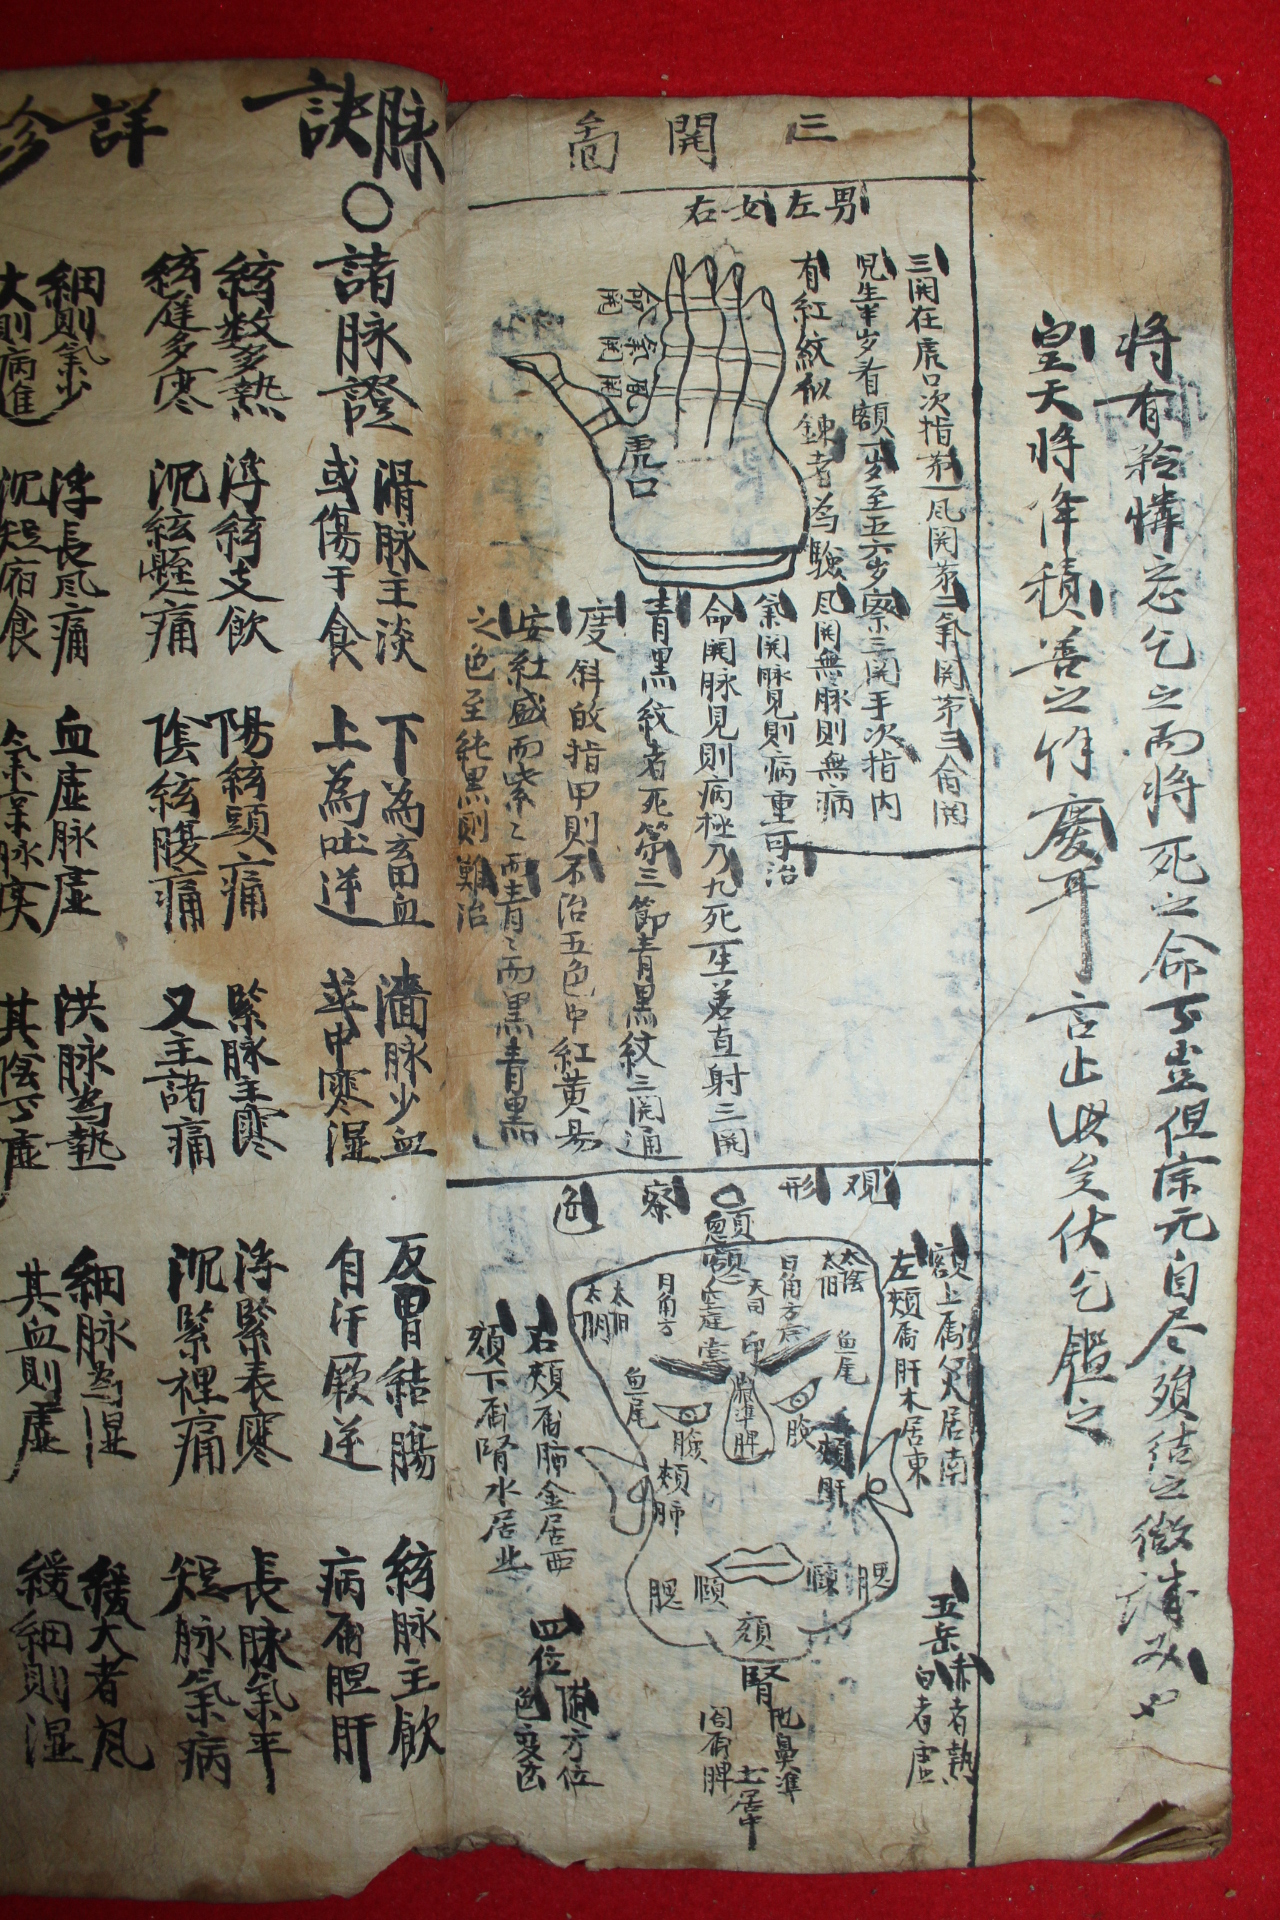 將有矜憐忘乞之而將死之命下豈但宗元自尽須結之
皇天將降積善之作慶耳言止此矣伏乞鑑之
三關圖
男左女右
三関在虎口次指苐一風関苐二氣関苐三命関
児生半岁看額一岁至五六岁察三関手次指内
有紅紋似鍊者為驗風関無脉則無病
氣関脉見則病重可治
命関脉見則病極乃九死一生若直射三関
青黑紋者死第三節青黑紋三関通
度斜的指甲則不治五色中紅黄易
安紅盛而紫〻而青〻而黑青黑
之色至純黑則難治
命関
氣関
風関
虎口
观形察色
額上屬火居南
左頰屬肝木居東
右頰屬肺金居西
頦下屬腎水居北
五岳
赤者熱
白者虛
太陰
太阳
日角方
天司
印堂
日角方
太阳
太阴
鱼尾
鱼尾
準脾
臉
臉
頰肝
頰肺
腮
頤
頤
腮
頦
腎
鼻準
屬脾
土居中
四位
随方位
色變
脉訣詳診
○諸脉證
滑脉主淡
或傷于食
下為畜血
上為吐逆
濇脉少血
或中寒湿
反胃結腸
自汗厥逆
絃脉主飲
病屬胆肝
絃数多熱
絃遅多寒
浮絃支飲
沉絃懸痛
陽絃頭痛
陰絃腹痛
緊脉主寒
又主諸痛
浮緊表寒
沉緊裡痛
長脉氣平
短脉氣病
細則氣少
大則病進
浮長風痛
沉短宿食
血虛脉虛
氣实脉实
洪脉為熱
其陰下虛
細脉為湿
其血則虛
緩大者風
緩細則湿